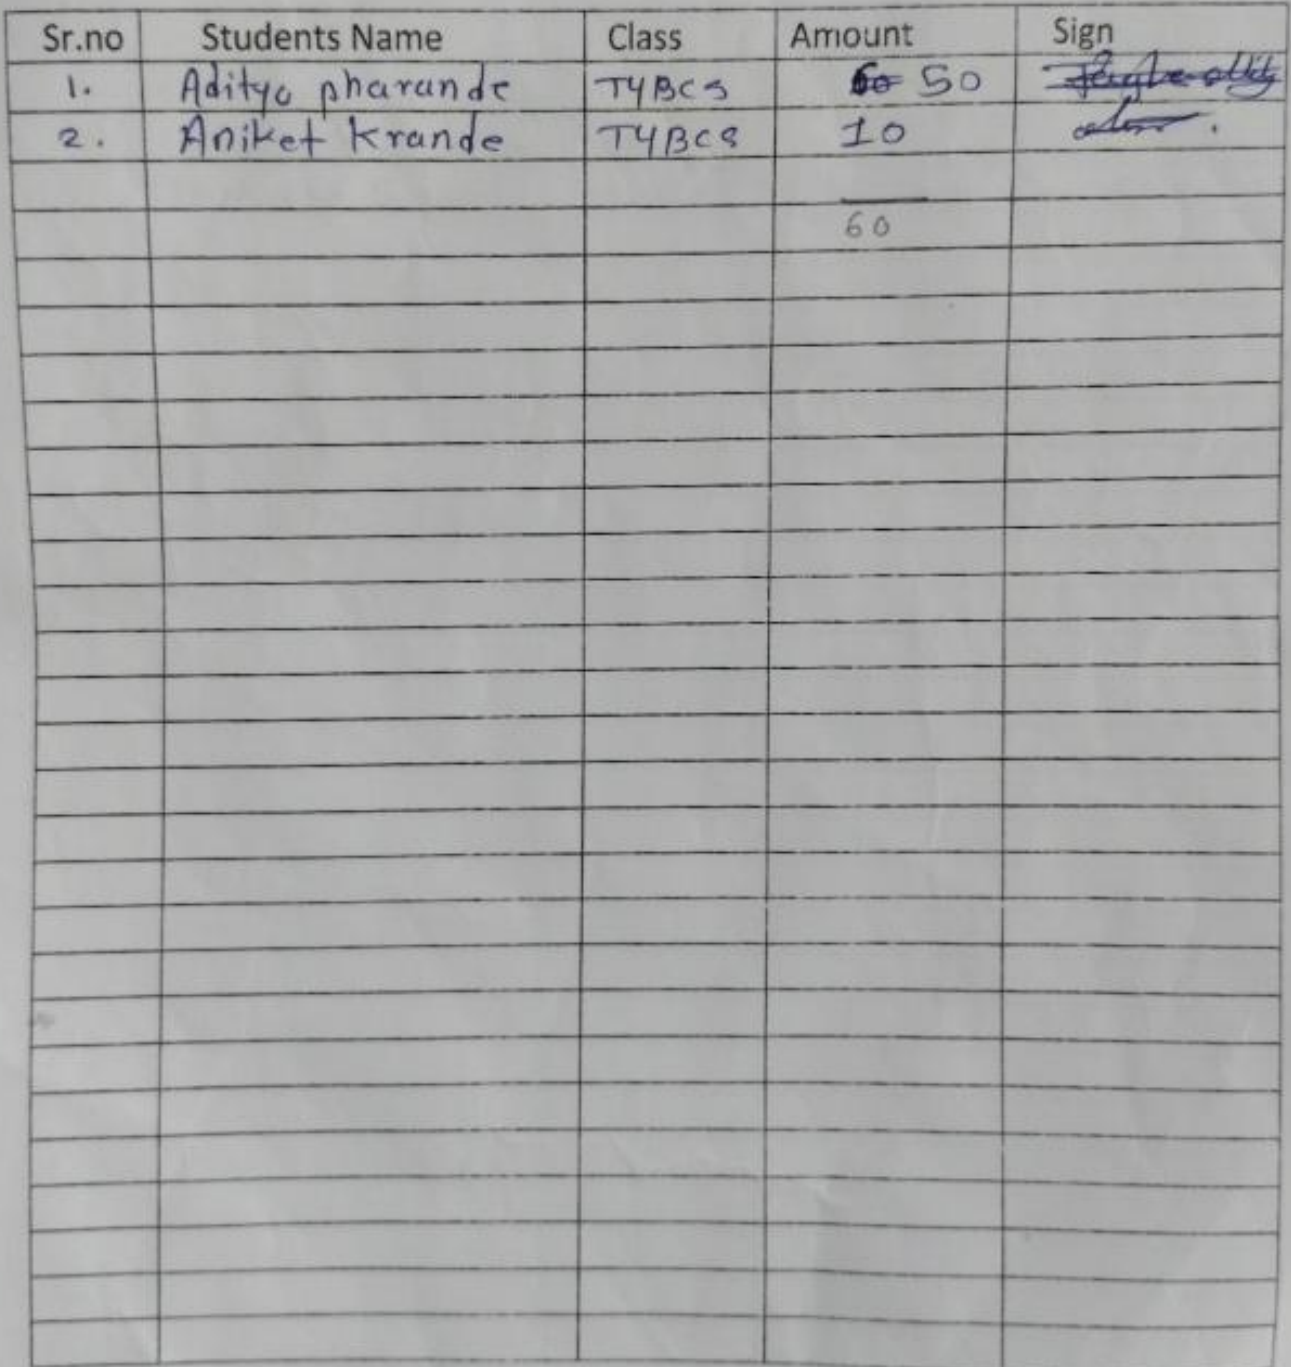 Sr.no Students Name Class Amount Sign
1. Aditya pharande TYBCS 50
2. Aniket Krande TYBCS 10
60